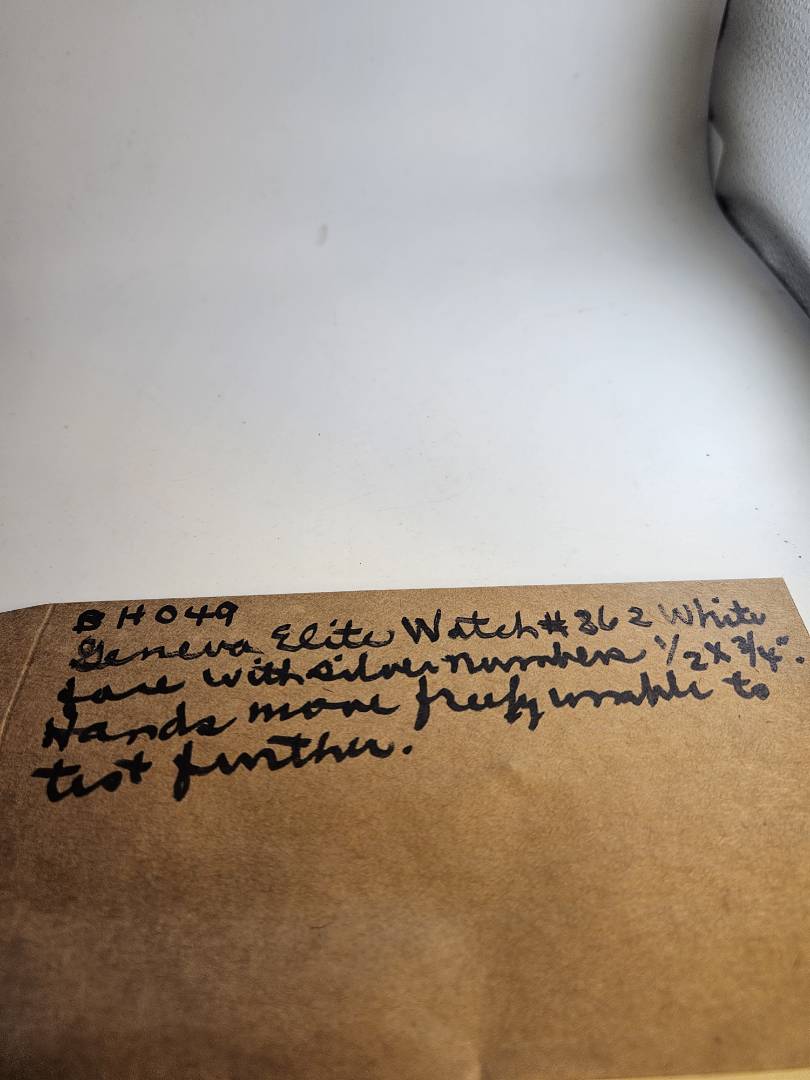 BH049
Geneva Elite Watch # 362 White
face with silver numbers 1/2 x 3/4".
Hands move freely unable to
test further.